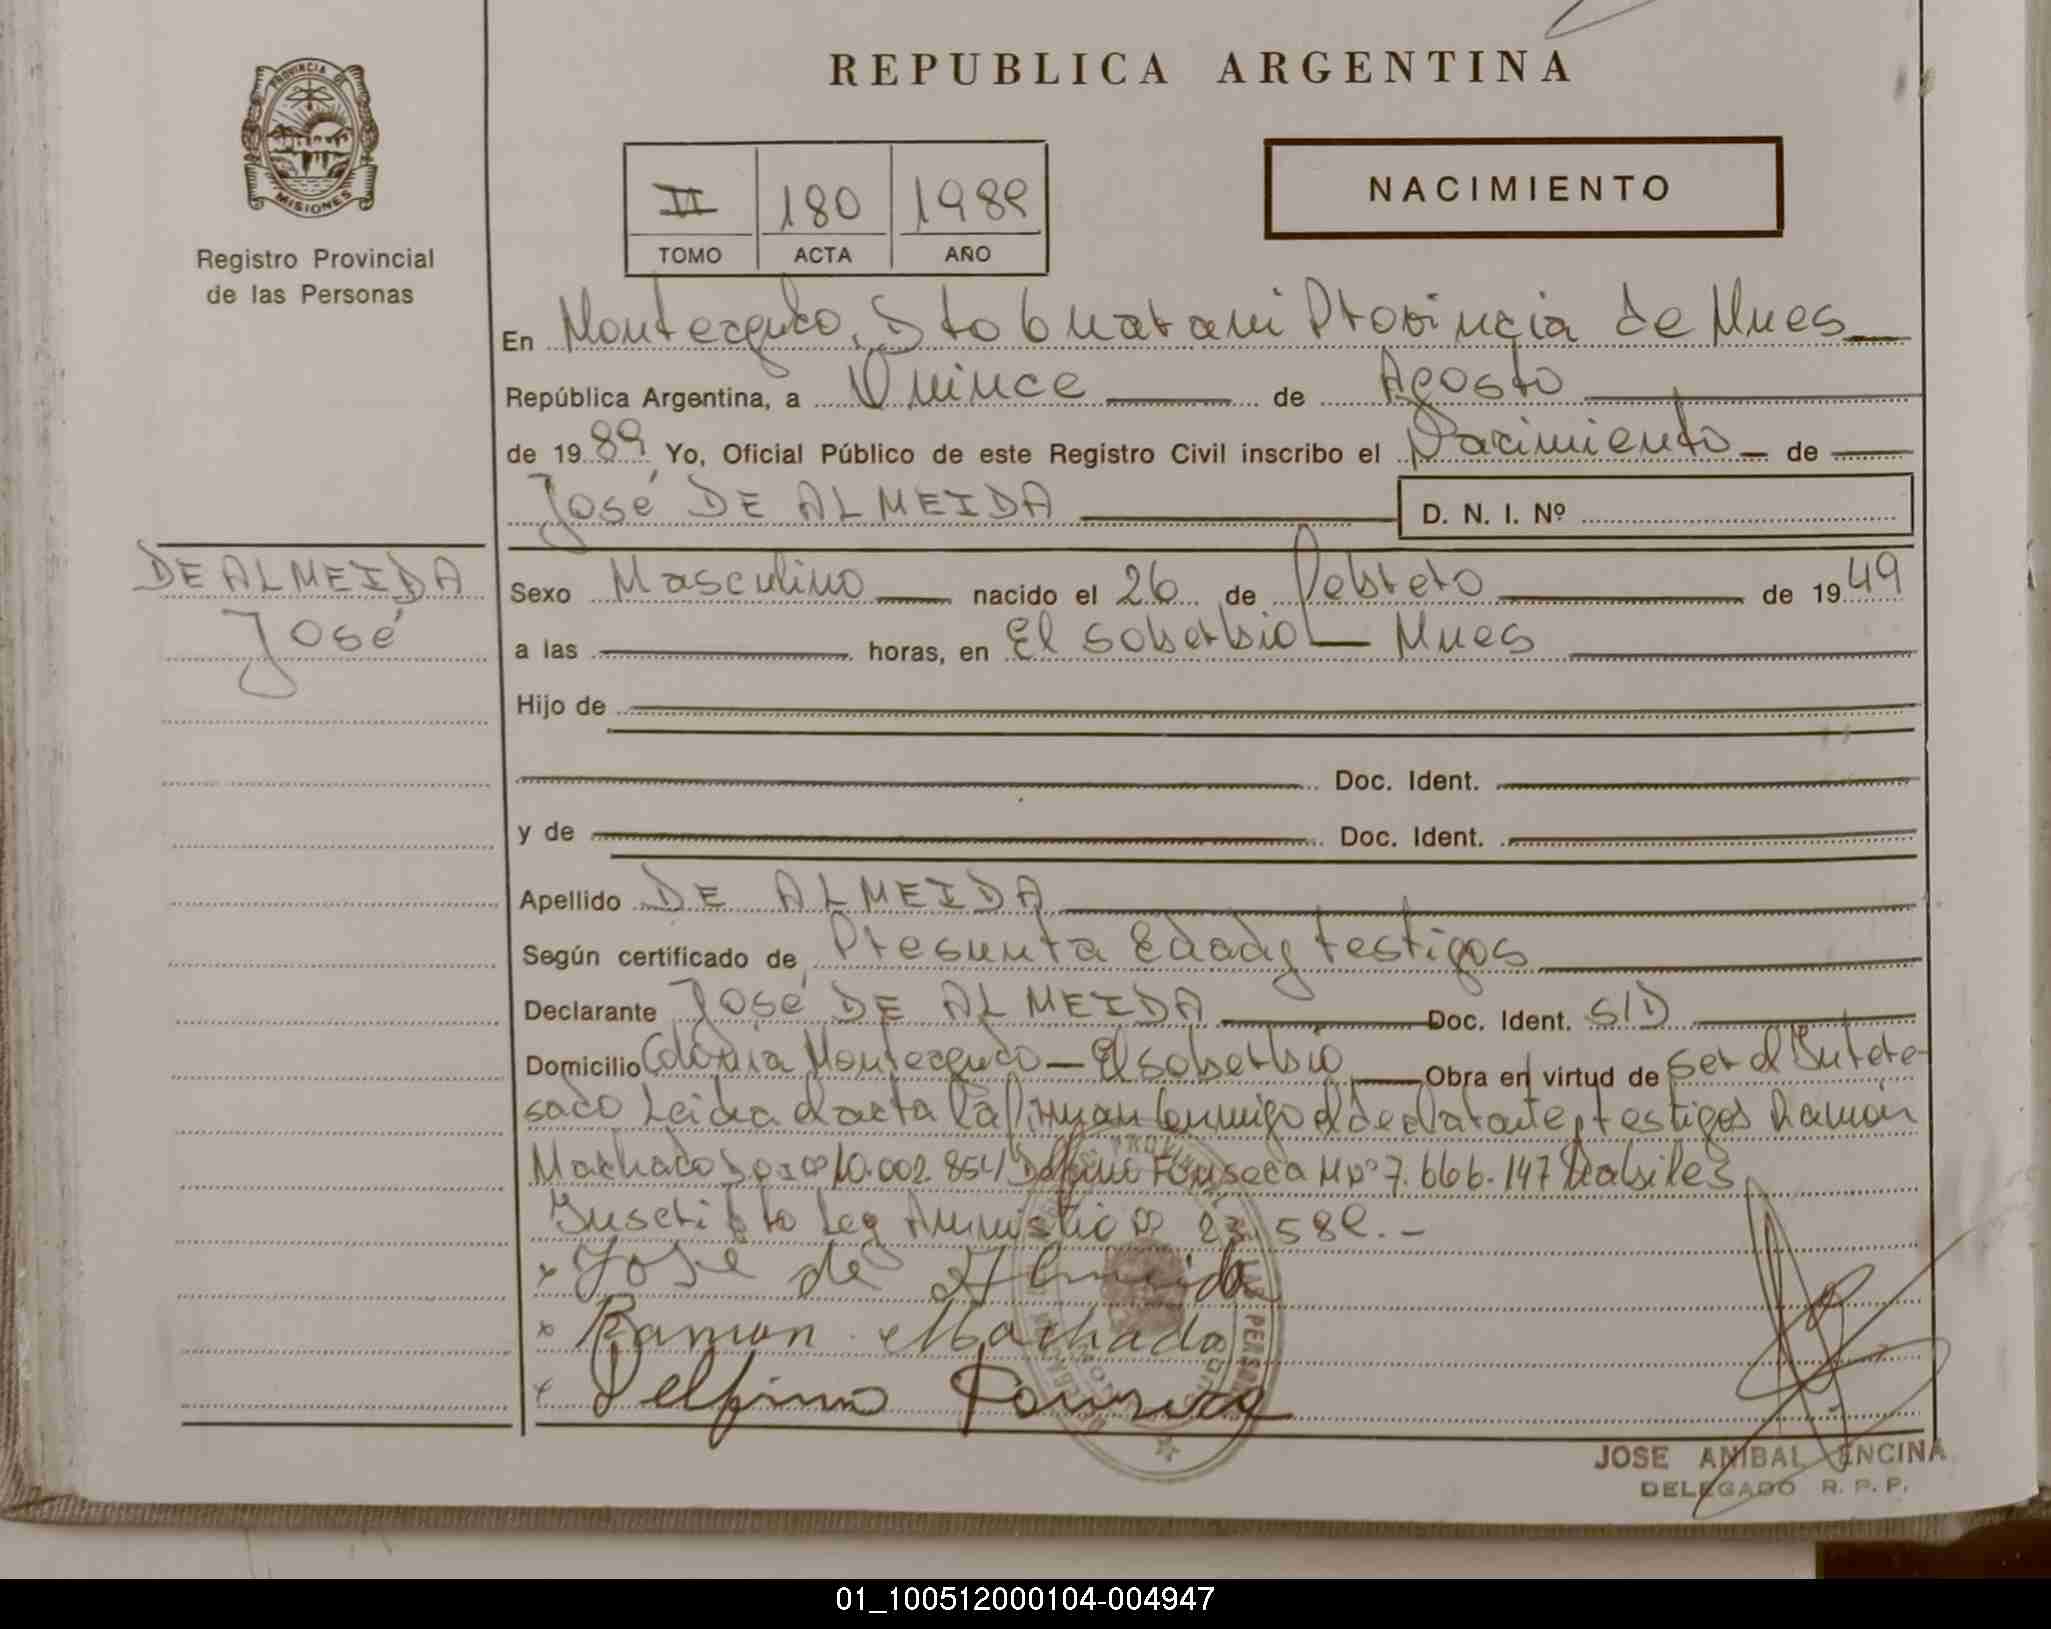 REPUBLICA ARGENTINA
PROVINCIA DE
MISIONES
Registro Provincial
de las Personas
II 180 1989
TOMO ACTA AÑO
NACIMIENTO
En Monteagudo, Dto Guarani Provincia de Mnes
República Argentina, a Quince de Agosto
de 1989 Yo, Oficial Público de este Registro Civil inscribo el Nacimiento de
José DE ALMEIDA D. N. I. Nº
DE ALMEIDA
José
Sexo Masculino nacido el 26 de Febrero de 1949
a las horas, en El soberbio Mnes
Hijo de
Doc. Ident.
y de Doc. Ident.
Apellido DE ALMEIDA
Según certificado de Presunta Edad y testigos
Declarante José DE ALMEIDA Doc. Ident. S/D
Domicilio Colonia Monteagudo - El soberbio Obra en virtud de ser el Intere-
sado Leida el acta la firman conmigo el declarante, testigos Ramón
Machado 10.002.854 Delfino Fonseca 7.666.147 habiles
Inscripto Ley Amnistia 23.582.-
x José de Almeida
x Ramon Machado
x Delfino Fonseca
JOSE ANIBAL ENCINA
DELEGADO R. P. P.
01_100512000104-004947